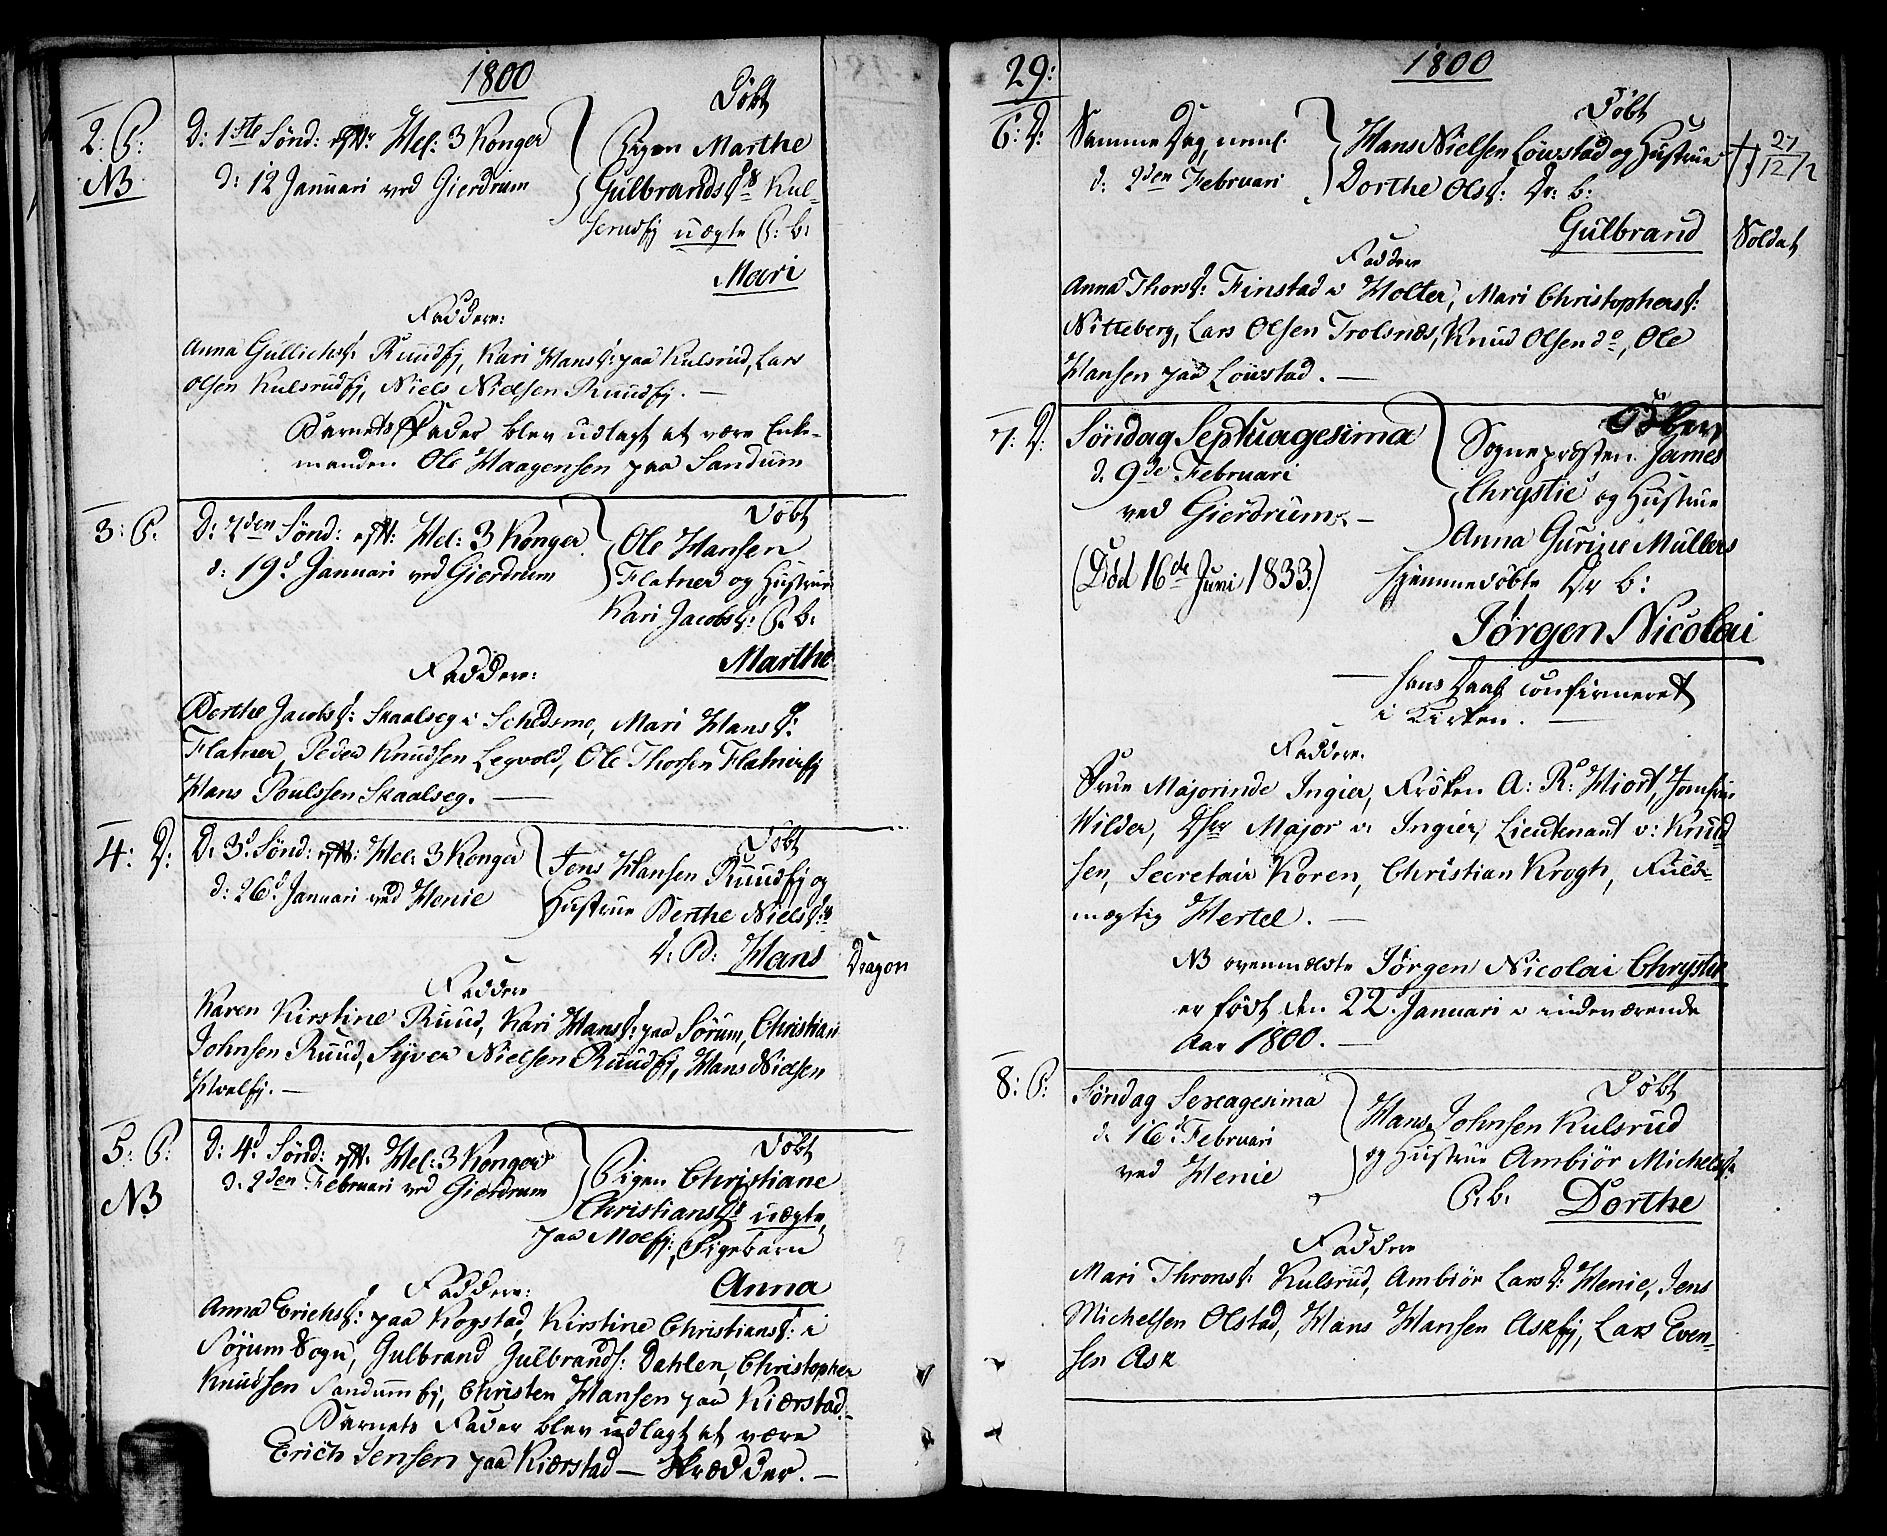 1800
2: P:
NB
D: 1ste Sønd: eft: Hel: 3 Konger
d: 12 Januari ved Gierdrum
Døbt
Pigen Marthe
Gulbrandsdr Kul-
serudej uægte P: b:
Mari
Faddere:
Anna Gullichsd: Ruudej, Kari Hansd: paa Kulsrud, Lars
Olsen Kulsrudej, Niels Nielsen Ruudej. —
Barnets Fader blev udlagt at være Enke-
manden Ole Haagensen paa Sandum
3: P.
D: 2den Sønd: eft: Hel: 3 Konger
d: 19d Januari ved Gierdrum
Døbt
Ole Hansen
Flatner og Hustrue
Kari Jacobsd: P. b:
Marthe
Faddere:
Berthe Jacobsd: Skaalseg i Schedsmo, Mari Hansd:
Flatner, Peder Knudsen Legvold, Ole Thorsen Flatnerej
Hans Poulssen Skaalseg. —
4: D:
D: 3d Sønd: eft: Hel: 3 Konger
d: 26d Januari ved Henie
Døbt
Jens Hansen Ruudej og
Hustrue Berthe Nielsdr
d: B: Hans
Dragon
Faddere
Karen Kirstine Ruud, Kari Hansd: paa Sørum, Christian
Johnsen Ruud, Syver Nielsen Ruudej, Hans Nielsen
Hvalej. —
5: P:
NB
D: 4d Sønd: eft: Hel: 3 Konger
d. 2den Februari ved Gierdrum
Døbt
Pigen Christiane
Christiansdr uægte,
paa Moeej: Pigebarn
Anna
Faddere:
Anna Erichsd: paa Kogstad, Kirstine Christiansd: i
Sørum Sogn, Gulbrand Gulbrands: Dahlen, Christopher
Knudsen Sandumej, Christen Hansen paa Kiærstad.
Barnets Fader blev udlagt at være
Erich Jensen paa Kiærstad — Skrædder. —
29:
1800
6: D:
Samme Dag, neml.
d: 2den Februari
Døbt
Hans Nielsen Løvstad og Hustrue
Dorthe Olsd: Dr: b:
Gulbrand
27
12
Soldat
Faddere
Anna Thorsd: Finstad v Holter, Mari Christophersd:
Nitteberg, Lars Olsen Trolsnæs, Knud Olsen do, Ole
Hansen paa Løvstad. —
7: D:
Søndag Septuagesima
d. 9de Februari
ved Gierdrum. —
(Død 16de Juni 1833.)
Sognepræsten James
Chrystie og Hustrue
Anna Gurine Müllers
hjemmedøbte Dr b:
Jørgen Nicolai
— hans Daab confirmeret
i Kirken. —
Faddere.
Frue Majorinde Ingier, Frøken A: R: Hiort, Jomfrue
Wilder, Hr Major v: Ingier, Lieutenant v: Knud
sen, Secretair Koren, Christian Krogh, Fuld-
mægtig Hertel. —
NB ovenmeldte Jørgen Nicolai Chrystie
er født den 22. Januari v indeværende
Aar 1800. —
8: P:
Søndag Sexagesima
d. 16d Februari
ved Henie
Døbt
Hans Johnsen Kulsrud
og Hustrue Ambiør Michelsd:
P. b. Dorthe
Faddere
Mari Thronsd: Kulsrud, Ambiør Larsd: Henie, Jens
Michelsen Olstad, Hans Hansen Askej, Lars Even-
sen Ask